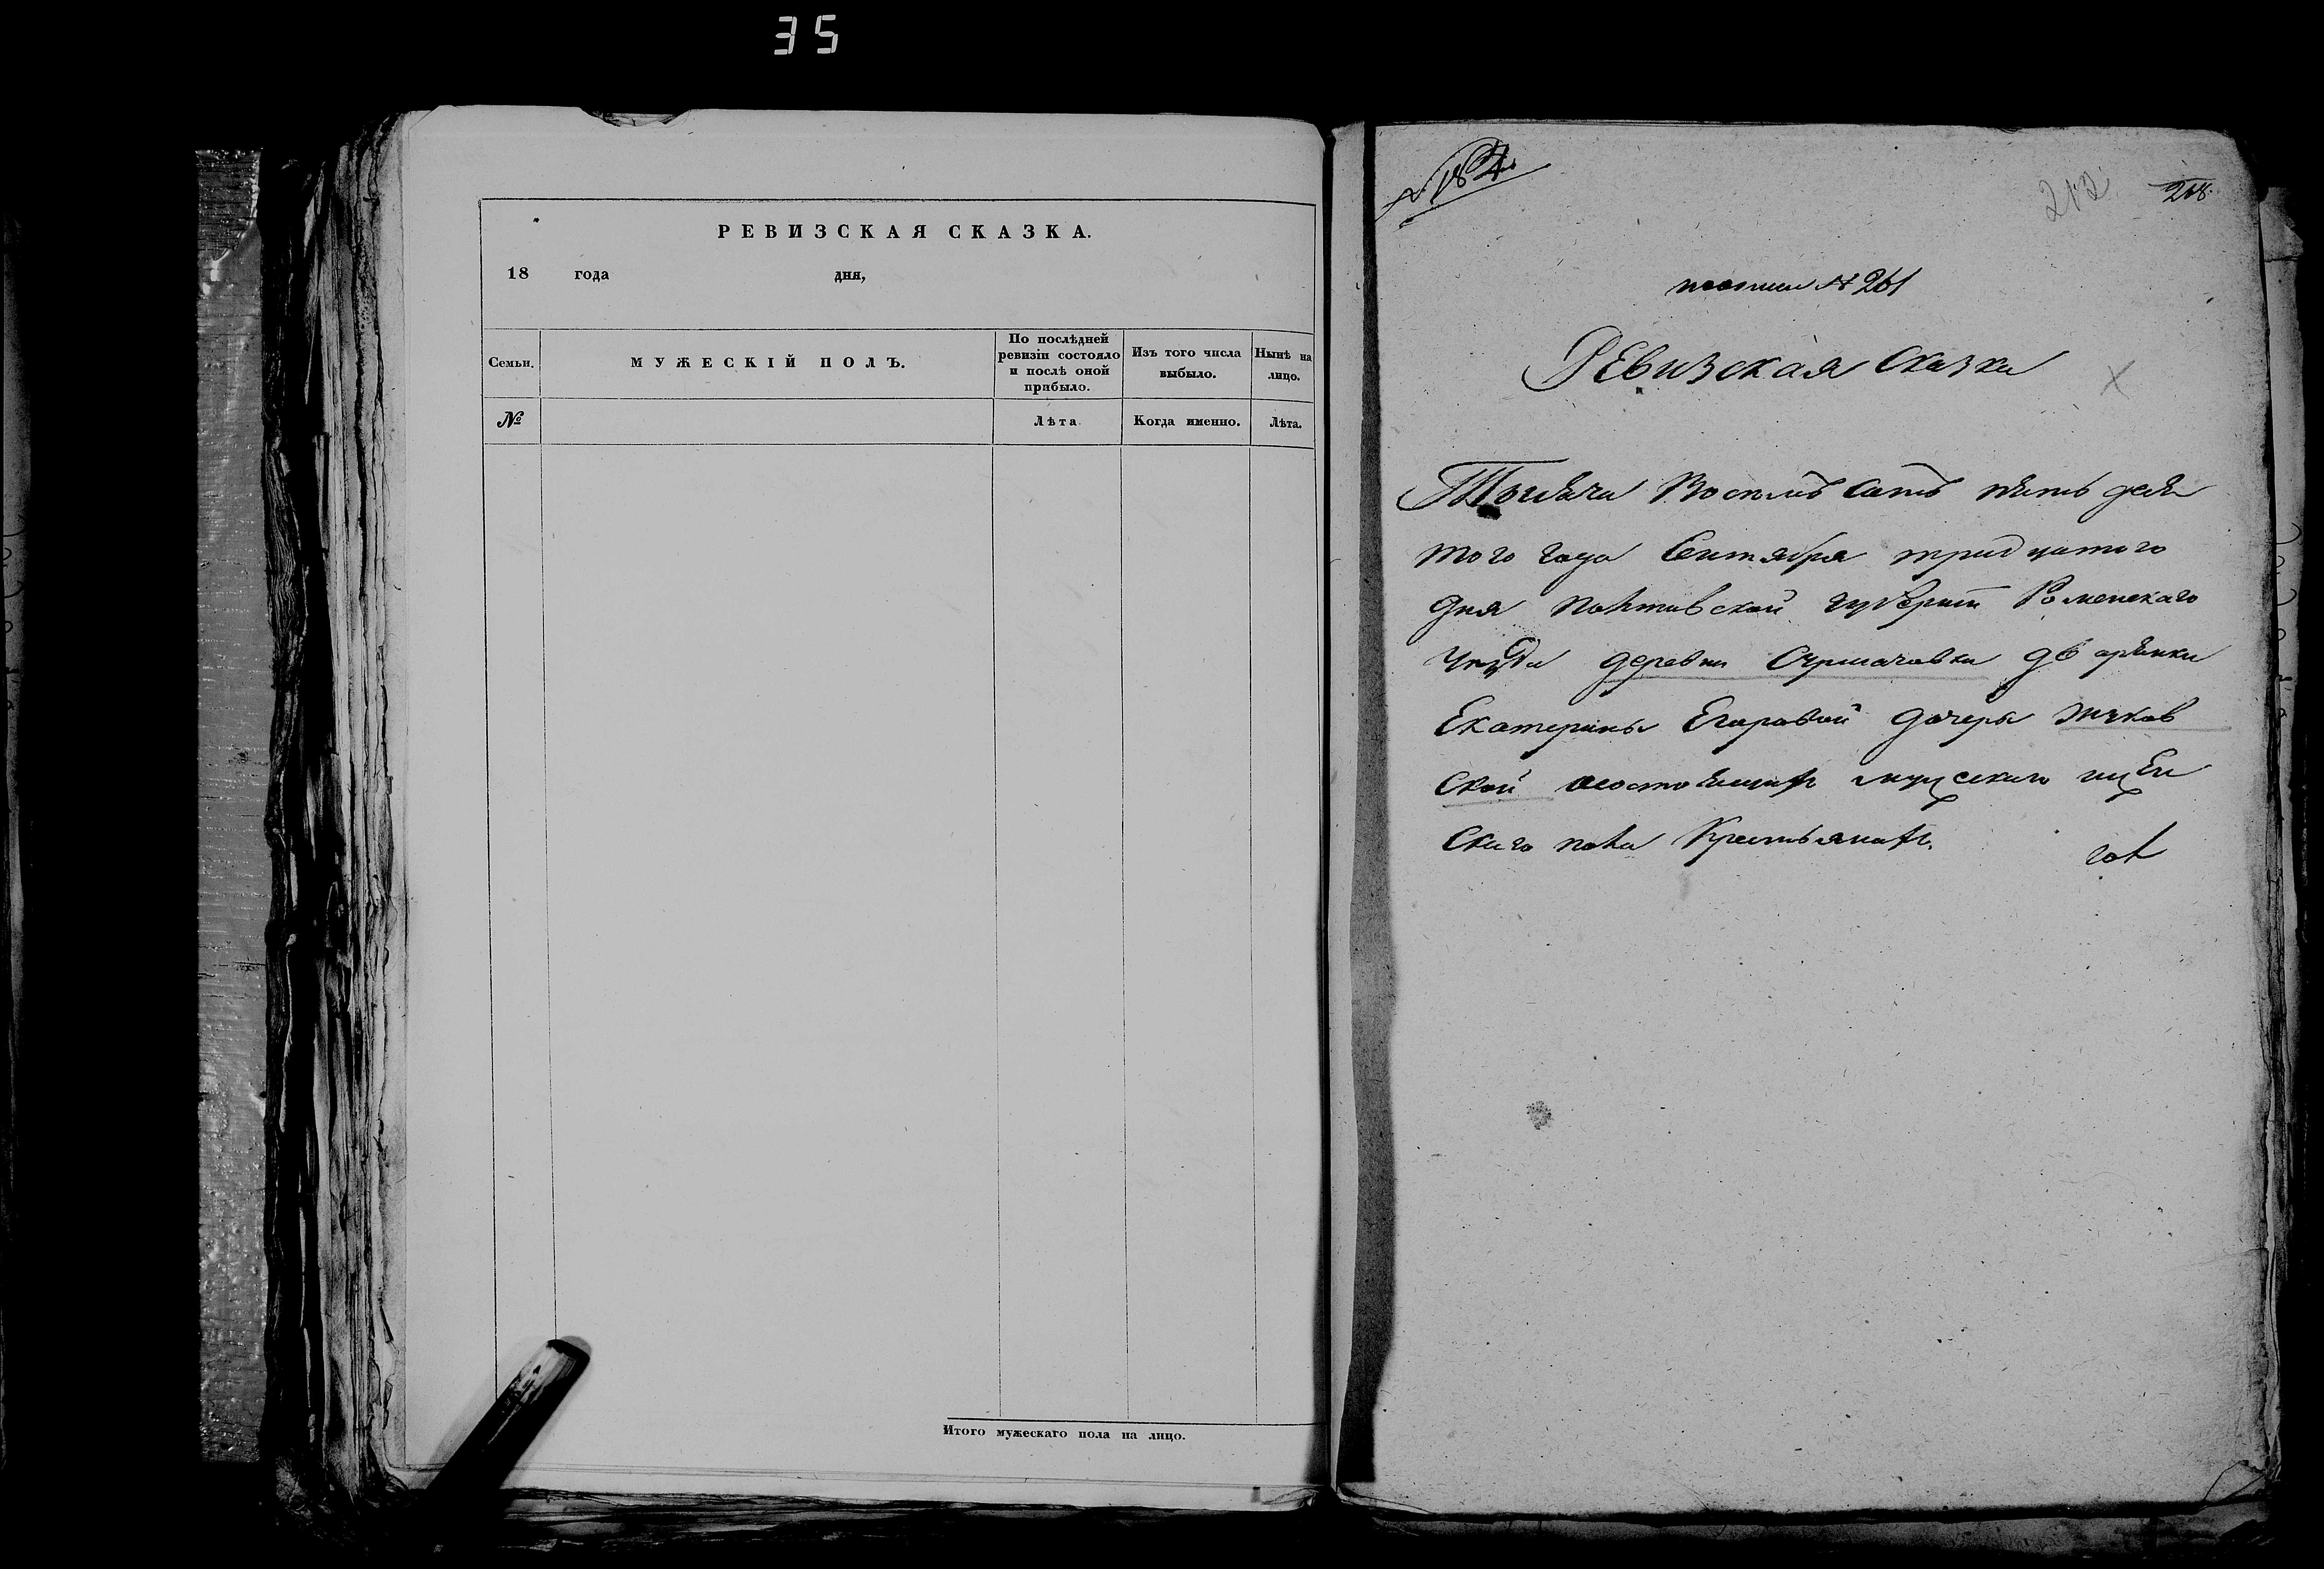 35
РЕВИЗСКАЯ СКАЗКА.
18 года дня,
Семьи.
МУЖЕСКІЙ ПОЛЪ.
По послѣдней ревизіи состояло и послѣ оной прибыло.
Изъ того числа выбыло.
Нынѣ на лицо.
№
Лѣта
Когда именно.
Лѣта.
Итого мужескаго пола на лицо.
212
208.
№ 261
Ревизская сказка
Тысяча Восемъ сотъ пять деся
того года Сентября тридцатого
дня Полтавской губерніи Роменскаго
уезда деревни дворянки
Екатерины Егоровой дочеры
ской о состоящихъ мужескаго
ского пола Крестьянахъ.